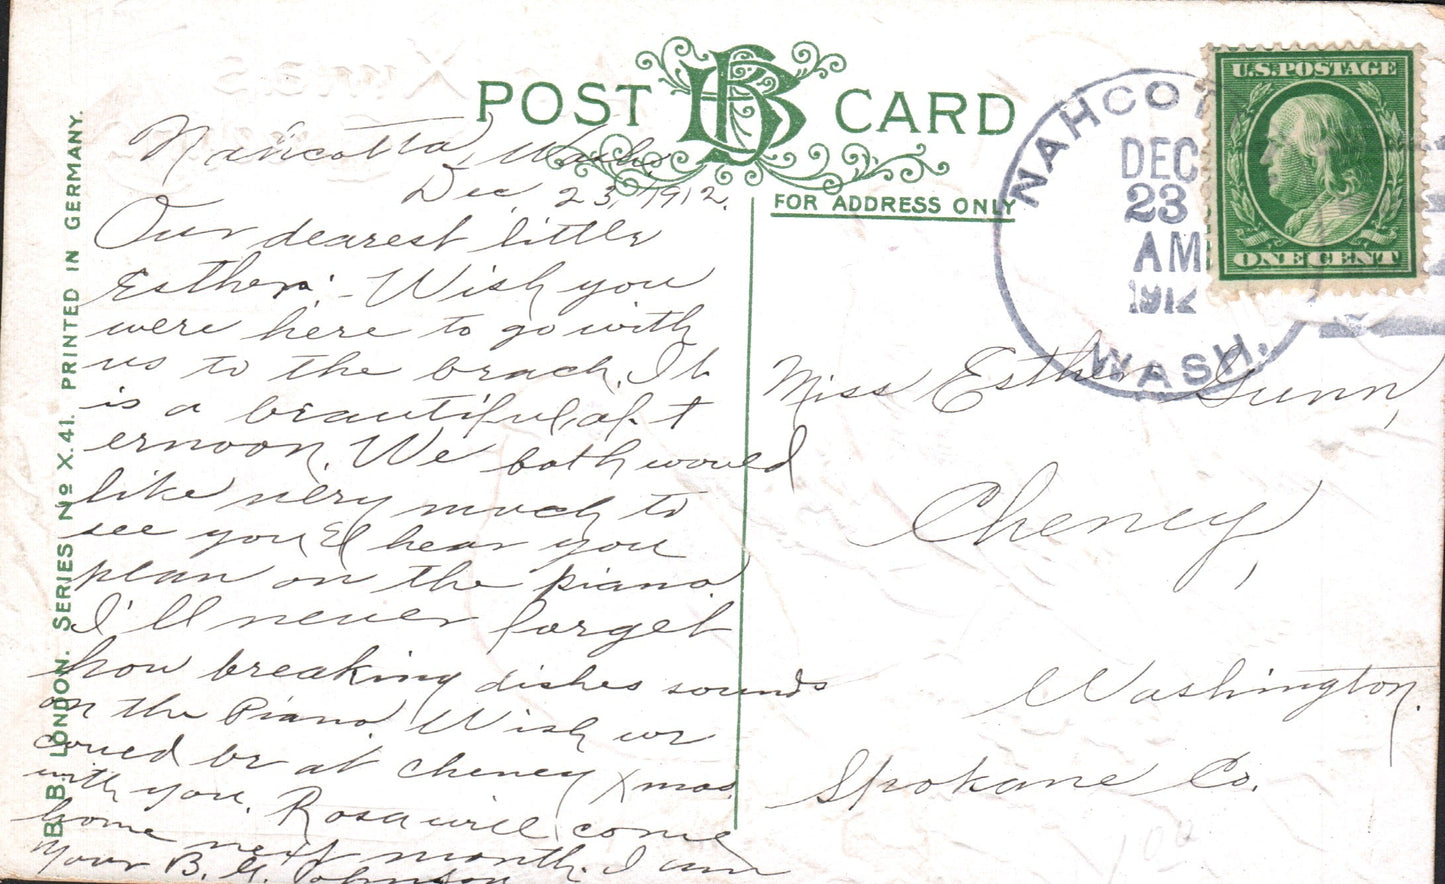 POST CARD
BB
FOR ADDRESS ONLY
B. B. LONDON. SERIES No X.41. PRINTED IN GERMANY.
Nahcotta, Wash.
Dec. 23, 1912.
Our dearest little
Esther: - Wish you
were here to go with
us to the beach. It
is a beautiful aft
ernoon. We both would
like very much to
see you & hear you
plan on the piano.
I'll never forget
how breaking dishes sounds
on the Piano. Wish we
could be at Cheney Xmas
with you. Rosa will come
home next month. I am
Your B. G. Johnson
NAHCOTTA
DEC
23
AM
1912
WASH.
U.S. POSTAGE
ONE CENT
Miss Esther Gunn,
Cheney,
Washington.
Spokane Co.
100